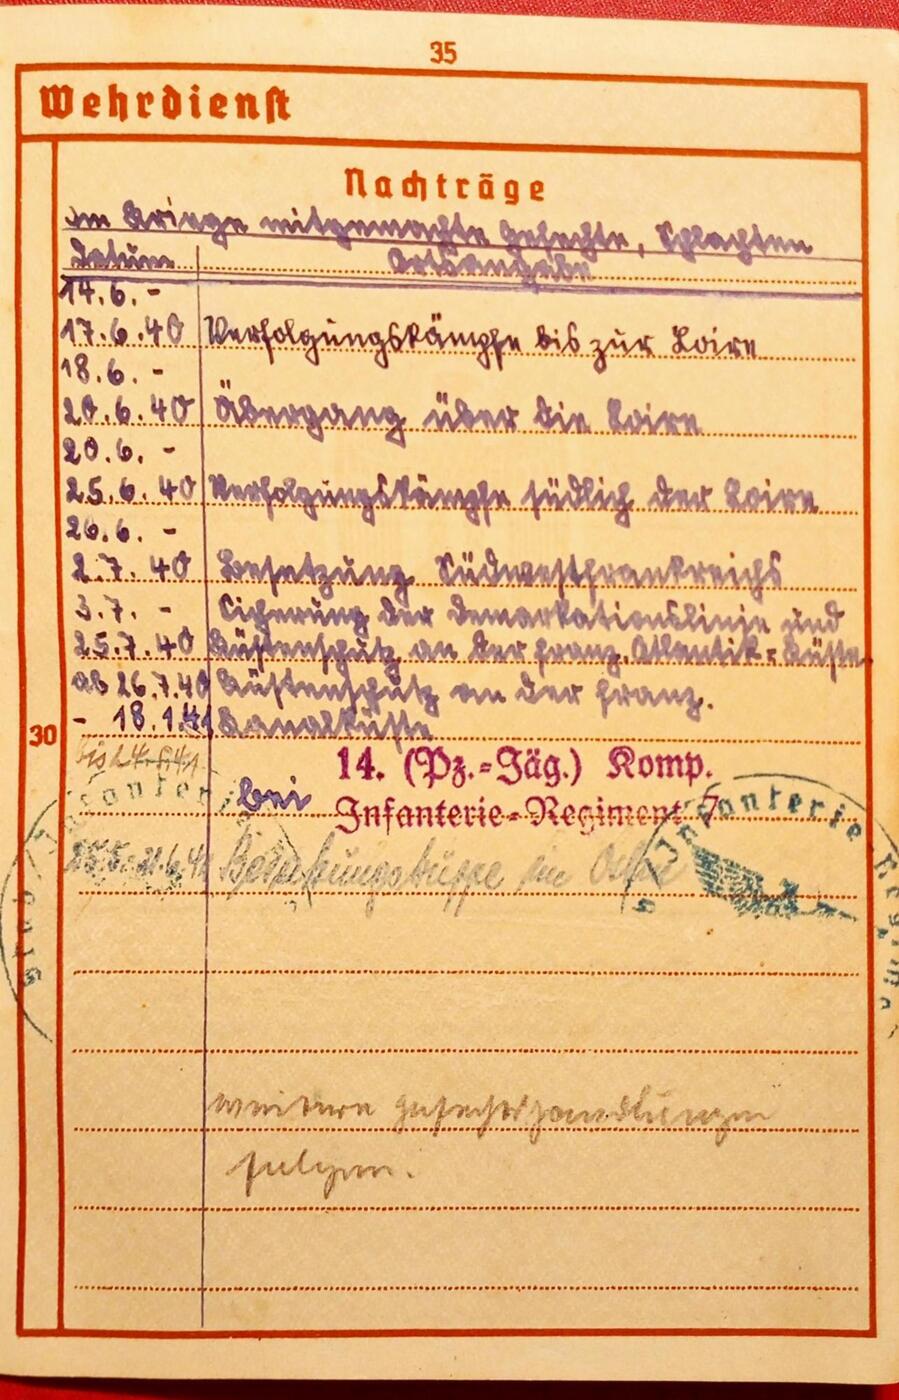 35
Wehrdienst
Nachträge
Im Kriege mitgemachte Gefechte, Schlachten
Datum Ortsangabe
14.6. -
17.6.40 Verfolgungskämpfe bis zur Loire
18.6. -
20.6.40 Übergang über die Loire
20.6. -
25.6.40 Verfolgungskämpfe südlich der Loire
26.6. -
2.7.40 Besetzung Südwestfrankreichs
3.7. - Sicherung der Demarkationslinie und
25.7.40 Küstenschutz an der franz. Atlantik-Küste
ab 26.7.40 Küstenschutz an der franz.
- 18.1.41 Kanalküste
30
bis
14. (Pz.-Jäg.) Komp.
bei Infanterie-Regiment 7
Infanterie
Stab Infanterie Reg
im
weitere Gefechtshandlungen
folgen.